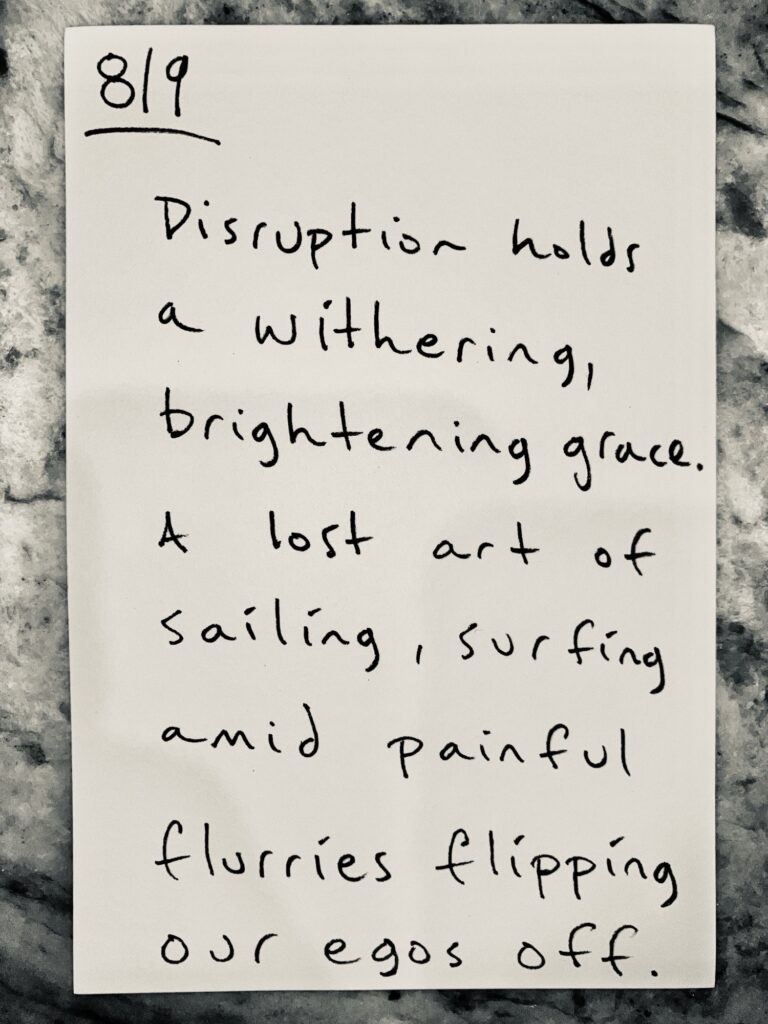 8/9
Disruption holds
a withering,
brightening grace.
A lost art of
sailing, surfing
amid painful
flurries flipping
our egos off.